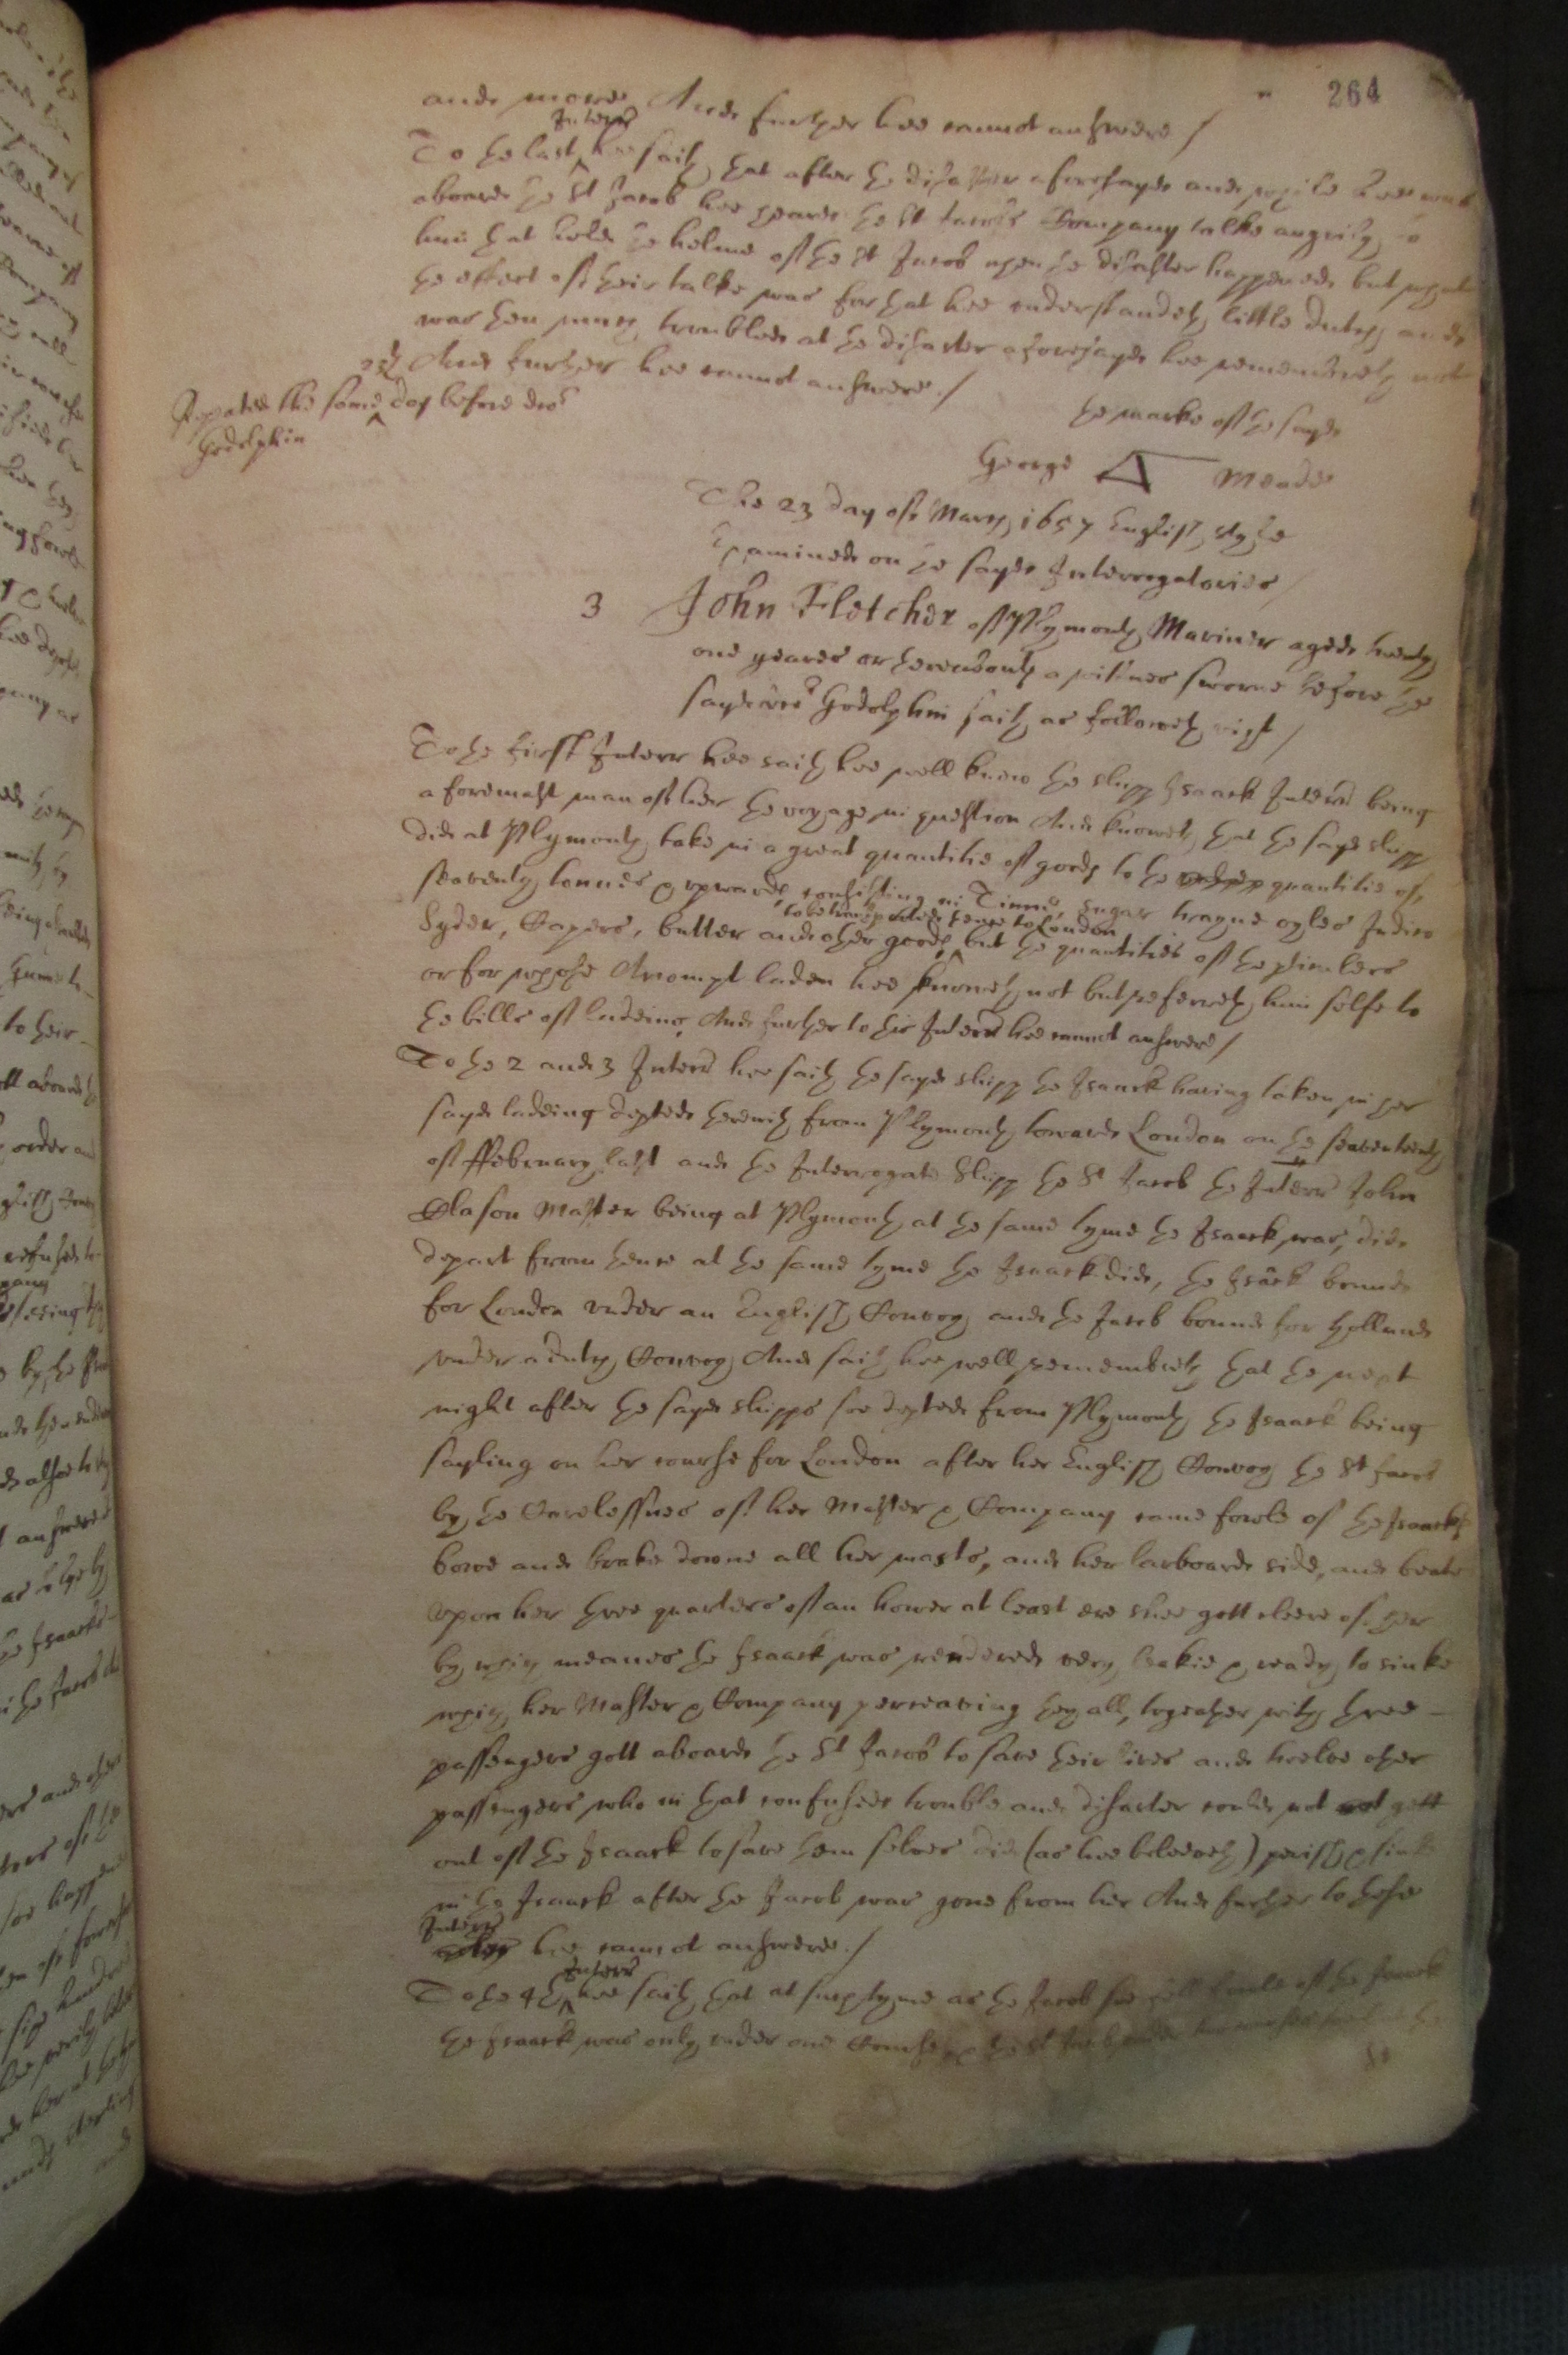 264
and more And further hee cannot answere /
Interr
To the last hee saith that after the disaster aforesayd and while hee was
aboard the St Jacob hee heard the St Jacobs Company talke angrily to
him that held the helme of the St Jacob when the disaster happened but what
the effect of their talke was for that hee understandeth little dutch and
was then much troubled at the disaster aforesayd hee remembreth not
And further hee cannot answere. /
23th
Repeated the same day before dor
Godolphin
the marke of the sayd
George Meade
The 23 day of March 1657 English style
Examined on the sayd Interrogatories /
3 John Fletcher of Plymouth Mariner aged twenty
one yeares or thereabouts a wittnes sworne before the
sayd dor Godolphin saith as followeth vizt /
To the first Interr hee saith hee well knew the shipp Isaack Interrd being
a foremast man of her the voyage in question And knoweth that the sayd shipp
did at Plymouth take in a great quantitie of goods to the quantitie of
seaventy tonnes & upwards consisting in Tinne, sugar trayne oyles Indico
to be transported thence to London
Syder, Capers, butter and other goods but the quantities of the perticulers
or for whose Accompt laden hee knoweth not but referreth him selfe to
the bills of lading And further to this Interr hee cannot answere /
To the 2 and 3 Interrs hee saith the sayd shipp the Isaack having taken in her
sayd ladeing departed therewith from Plymouth towards London on the seaventeenth
of ffebruary last and the Interrogate Shipp the St Jacob the Interr John
Clason Master being at Plymouth at the same tyme the Isaack was, did
depart from thence at the same tyme the Isaack did, the Isaack bound
for London under an English Convoy and the Jacob bound for Holland
under a dutch Convoy And saith hee well remembreth that the next
night after the sayd shipps soe departed from Plymouth the Isaack being
sayling on her course for London after her English Convoy the St Jacob
by the Carelessnes of her Master & Company came fowle of the Isaacks
bowe and brake downe all her masts, and her larboard side, and beate
upon her three quarters of an hower at least ere shee gott cleere of her
by which meanes the Isaack was rendered very leakie & ready to sinke
which her Master & Company perceaving they all, togeather with three
passengers gott aboard the St Jacob to save their lives and twelve other
passengers who in that confused trouble and disaster could not gott
out of the Isaack to save them selves did (as hee beleeveth) perish & sinke
in the Isaack after the Jacob was gone from her And further to these
Interrs
hee cannot answere. /
Interr
To the 4th hee saith that at such tyme as the Jacob soe fell fowle of the Isaack
the Isaack was only under one Course, & the St Jacob under